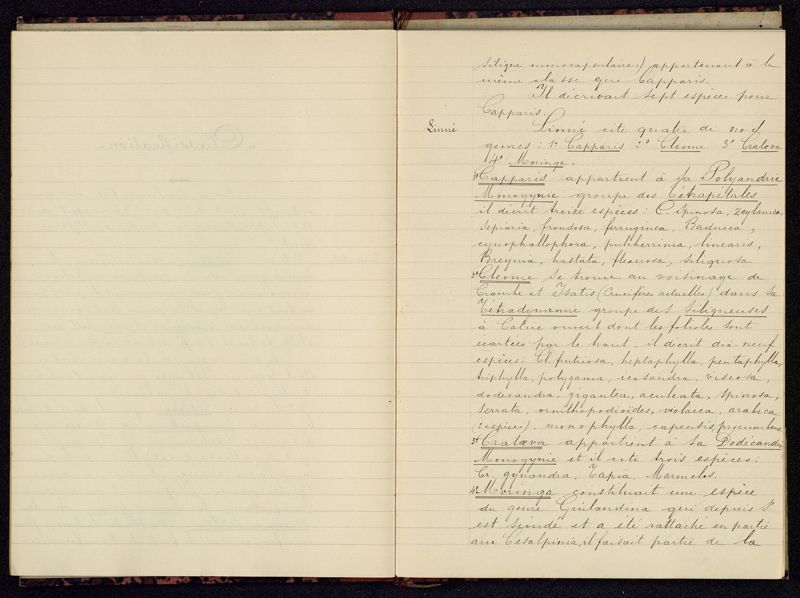 Classification
silique monocapsulaire) appartenant à la
même classe que Capparis.
Il décrivait sept espèces pour
Capparis.
Linné
Linné cite quatre de nos
genres : 1º Capparis 2º Cleome 3º Cratæva
4º Moringa.
1º Capparis appartient à sa Polyandrie
Monogynie groupe des Tétrapétales
il décrit treize espèces : C. Spinosa, zeylanica,
sepiaria, frondosa, ferruginea, Baducca,
cynophallophora, pulcherrima, linearis,
Breynia, hastata, flexuosa, siliquosa
2º Cleome se trouve au voisinage de
Crambe et Isatis (Crucifères actuelles) dans sa
Tétradynamie groupe des Siliqueuses
à Calice ouvert dont les folioles sont
écartées par le haut, il décrit dix neuf
espèces : Cl. fruticosa, heptaphylla, pentaphylla,
triphylla, polygama, icosandra, viscosa,
dodecandra, gigantea, aculeata, spinosa,
serrata, ornithopodioides, violacea, arabica
(2 espèces), monophylla, capensis, procumbens.
3º Cratæva appartient à sa Dodécandrie
Monogynie et il cite trois espèces :
Cr. gynandra, Tapia, Marmelos.
4º Moringa constituait une espèce
du genre Guilandina qui depuis s'
est scindé et a été rattaché en partie
aux Cesalpinia, il faisait partie de la